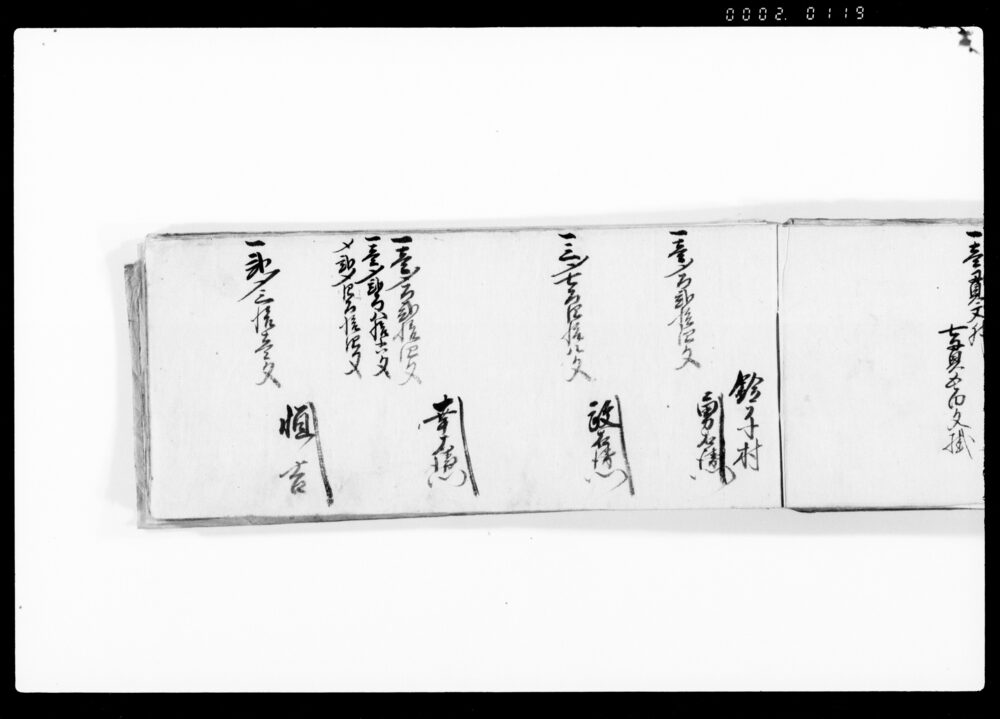 0002. 0119
一壱貫文
七貫五百文掛
一壱〆百弐拾四文
鈴子村
勇右衛門
一三〆七百四拾八文
政右衛門
一壱〆百弐拾四文
一壱〆弐百八拾六文
〆弐〆四百拾四文
幸右衛門
一弐〆三拾壱文
恒吉